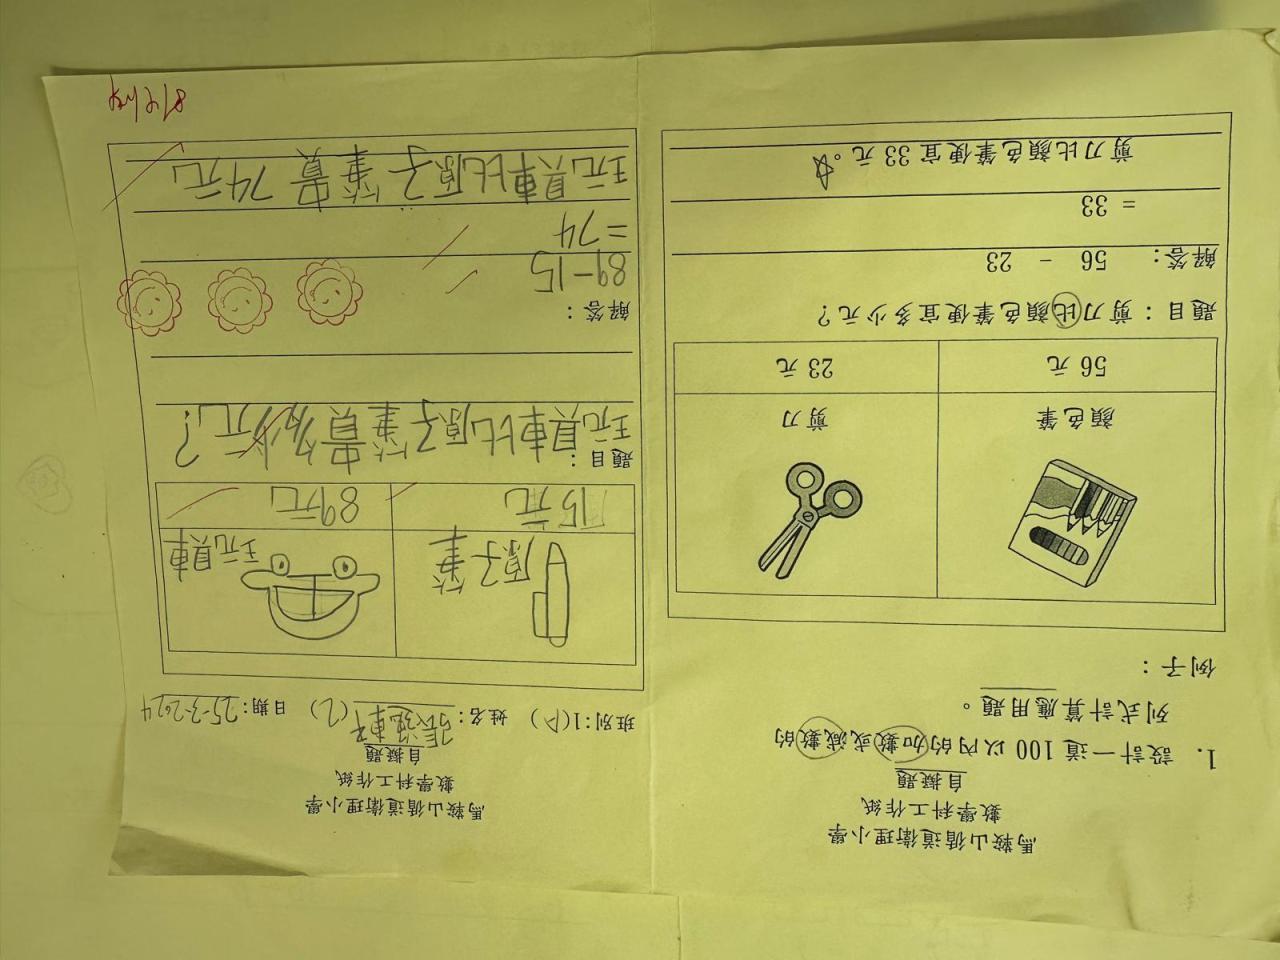 馬鞍山循道衛理小學
數學科工作紙
自擬題
1. 設計一道 100 以內的加數或減數的
列式計算應用題。
例子：
顏色筆
剪刀
56 元
23 元
題目：剪刀比顏色筆便宜多少元？
解答： 56 - 23
= 33
剪刀比顏色筆便宜 33 元。
馬鞍山循道衛理小學
數學科工作紙
自擬題
班別:1( ) 姓名: (2) 日期:25-3-2024
原子筆
玩具車
15元
89元
題目：
玩具車比原子筆貴多少元？
解答：
89-15
=74
玩具車比原子筆貴74元